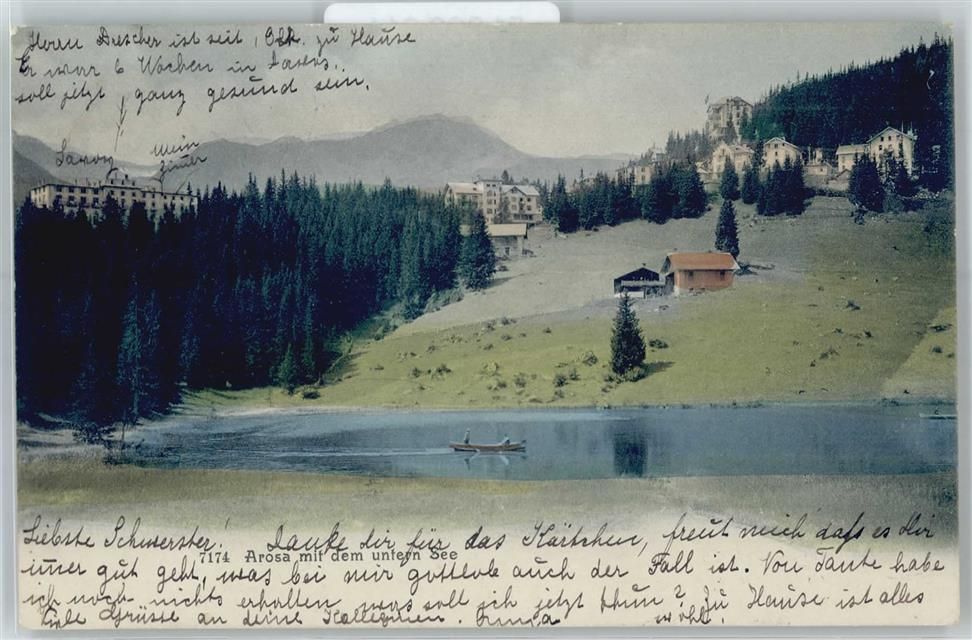 Herrn Drescher ist seit, Okt. zu Hause
Er war 6 Wochen in Davos.
soll jetzt ganz gesund sein.
mein
Zimer
Liebste Schwerster! Danke dir für das Kärtchen, freut mich daß es dir
7174 Arosa mit dem untern See
imer gut geht, was bei mir gottlob auch der Fall ist. Von Tante habe
ich noch nichts erhalten, was soll ich jetzt thun? Zu Hause ist alles
viele Grüsse an deine wohl.